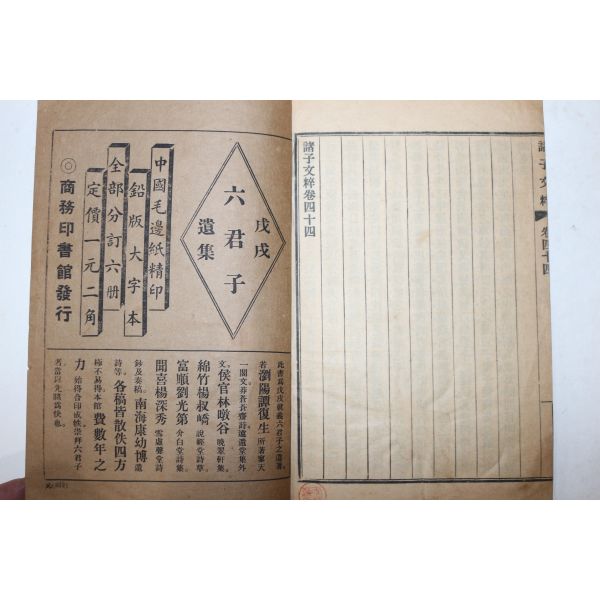 諸子文粹 卷四十四
諸子文粹卷四十四
戊戌
六君子
遺集
中國毛邊紙精印
鉛版大字本
全部分訂六册
定價一元二角
◎商務印書館發行
此書爲戊戌就義六君子之遺著
者瀏陽譚復生所著寥天
一閣文莽蒼蒼齋詩遠遺堂集外
文侯官林暾谷晚翠軒集
綿竹楊叔嶠說經堂詩草
富順劉光第介白堂詩集
聞喜楊深秀雪虛聲堂詩
鈔及奏稿南海康幼博遺
詩等各稿皆散佚四方
極不易得本館費數年之
力始得合印成帙崇拜六君子
者當以先睹爲快也